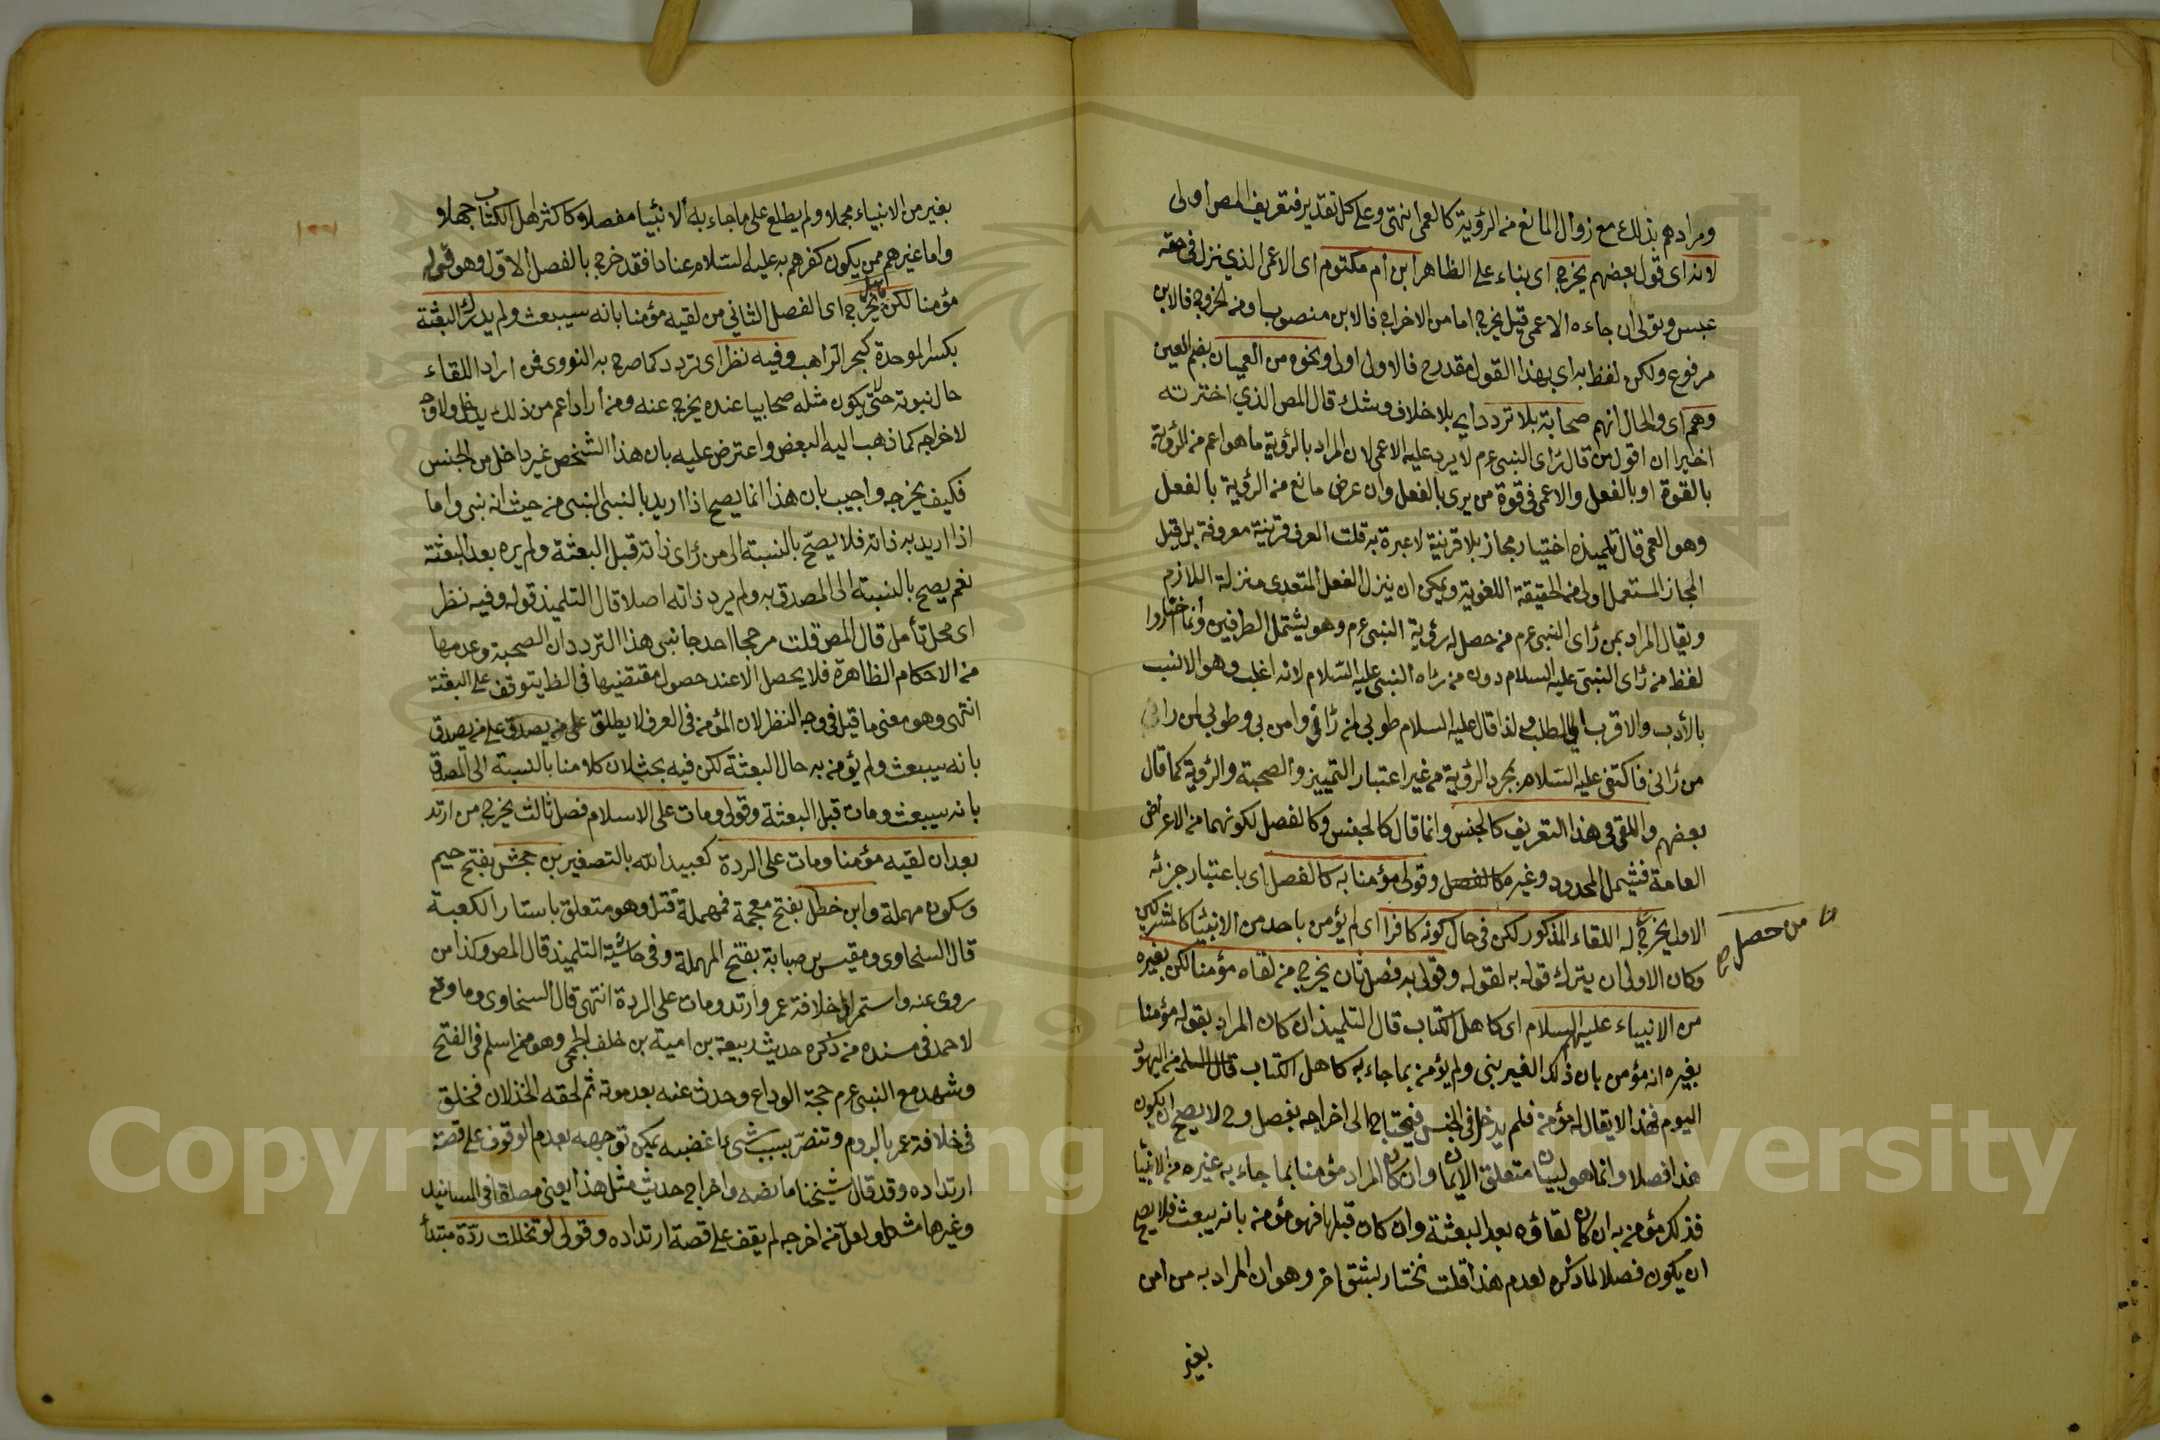 ومرادهم بذلك مع زوال المانع من الرؤية كالعمى انتهى وعلى كل تقدير فتعريف المص اولى
لانه اى قول بعضهم يخرج اى بناء على الظاهر ابن ام مكتوم اى الاعمى الذي نزل في حقه
عبس وتولى ان جاءه الاعمى قيل يخرج اما من الاخراج فالابن منصوب او من الخروج فالابن
مرفوع ولكن لفظ به اى بهذا القول مقدرح فالاولى اولى ونحوه من العميان بضم العين
وهم اى والحال انهم صحابة بلا تردد اي بلا خلاف وشك قال المص الذي اخترته
اخيرا ان اقول من قال رأى النبى عم لا يرد عليه الاعمى لان المراد بالرؤية ما هو اعم من الرؤية
بالقوة او بالفعل والاعمى في قوة من يرى بالفعل وان عرض مانع من الرؤية بالفعل
وهو العمى قال تلميذه اختيار مجاز بلا قرينة لا عبرة به قلت العرف قرينة معروفة بل قيل
المجاز المستعمل اولى من الحقيقة اللغوية ويمكن ان ينزل الفعل المتعدى منزلة اللازم
ويقال المراد بمن رأى النبى عم من حصل له رؤية النبى عم وهو يشتمل الطرفين وانما اختاروا
لفظ من رأى النبى عليه السلام دون من رآه النبى عليه السلام لانه اغلب وهو الانسب
بالأدب والاقرب الى المطلب ولذا قال عليه السلام طوبى لمن رآنى وامن بى وطوبى لمن رأى
من رآنى فاكتفى عليه السلام بمجرد الرؤية من غير اعتبار التمييز والصحبة والرؤية كما قال
بعضهم واللقى في هذا التعريف كالجنس وانما قال كالجنس وكالفصل لكونهما من الاعراض
العامة فيشمل المحدود وغيره كالفصل وقولى مؤمنا به كالفصل اى باعتبار جزئه
الاول يخرج له اللقاء المذكور لكن في حال كونه كافرا اى لم يؤمن باحد من الانبيا كالمشركين
من حصل صح
وكان الاولى ان يترك قوله به لقوله وقولى به فصل ثان يخرج من لقاه مؤمنا لكن بغيره
من الانبياء عليهم السلام اى كاهل الكتاب قال التلميذ ان كان المراد بقوله مؤمنا
بغيره انه مؤمن بان ذلك الغير نبى ولم يؤمن بما جاء به كاهل الكتاب قال من اليهود
اليوم فهذا لا يقال له مؤمن فلم يدخل في الجنس فيحتاج الى اخراجه بفصل وح لا يصح ان يكون
هذا فصلا وانما هو لبيان متعلق الايمان وان كان المراد مؤمنا بما جاء به غيره من الانبيا
فذلك مؤمن به ان كان لقاؤه بعد البعثة وان كان قبلها فهو مؤمن بانه يبعث فلا يصح
ان يكون فصلا لما ذكره لعدم هذا قلت نختار بشق اخر وهو ان المراد به من امن
بغير
بغير من الانبياء مجملا ولم يطلع على ما جاء به الانبيا مفصلا وكاكثر اهل الكتاب جهلا
واما غيرهم ممن يكون كفرهم به عليه السلام عنادا فقد خرج بالفصل الاول وهو قوله
مؤمنا لكن هل يخرج اى الفصل الثاني من لقيه مؤمنا بانه سيبعث ولم يدرك البعثة
بكسر الموحدة كبحر الراهب وفيه نظر اى تردد كما صرح به النووى فمن اراد اللقاء
حال نبوته حتى لا يكون مثله صحابيا عنده يخرج عنه ومن أراد اعم من ذلك يدخل ولا وجه
لاخراجه كما ذهب اليه البعض واعترض عليه بان هذا الشخص غير داخل من الجنس
فكيف يخرجه واجيب بان هذا انما يصح اذا اريد بالنبى النبى من حيث انه نبى واما
اذا اريد به ذاته فلا يصح بالنسبة الى من رأى ذاته قبل البعثة ولم يره بعد البعثة
نعم يصح بالنسبة الى المصدق به ولم يرد ذاته اصلا قال التلميذ قوله وفيه نظر
اى محل تأمل قال المص قلت مرجحا احد جانبى هذا التردد ان الصحبة وعدمها
من الاحكام الظاهرة فلا يحصل الا عند حصول مقتضيها في الظ يتوقف على البعثة
انتهى وهو معنى ما قيل فى وجه النظر لان المؤمن فى العرف لا يطلق على من يصدق على من يصدق
بانه سيبعث ولم يؤمن به حال البعثة لكن فيه بحث لان كلامنا بالنسبة الى المصدق
بانه سيبعث ومات قبل البعثة وقولى ومات على الاسلام فصل ثالث يخرج من ارتد
بعد ان لقيه مؤمنا ومات على الردة كعبيد الله بالتصغير بن جحش بفتح جيم
وسكون مهملة وابن خطل بفتح معجمة فمهملة قتل وهو متعلق باستار الكعبة
قال السخاوى ومقيس بن صبابة بفتح المهملة وفى حاشية التلميذ قال المص وكذا من
روى عنه واستمر الى خلافة عمر وارتد ومات على الردة انتهى قال السخاوى وما وقع
لاحمد فى مسنده من ذكره حديث ربيعة بن امية بن خلف الجمحى وهو ممن اسلم فى الفتح
وشهد مع النبى عم حجة الوداع وحدث عنه بعد موته ثم لحقه الخذلان فخلق
فى خلافة عمر بالروم وتنصر بسبب شىء اغضبه يمكن توجيهه بعدم الوقوف على قصة
ارتداده وقد قال شيخنا ما نصه واخراج حديث مثل هذا يعنى مطلقا في المسانيد
وغيرها مشكل ولعل من اخرجه لم يقف على قصة ارتداده وقولى لو تخللت ردة مبتدأ